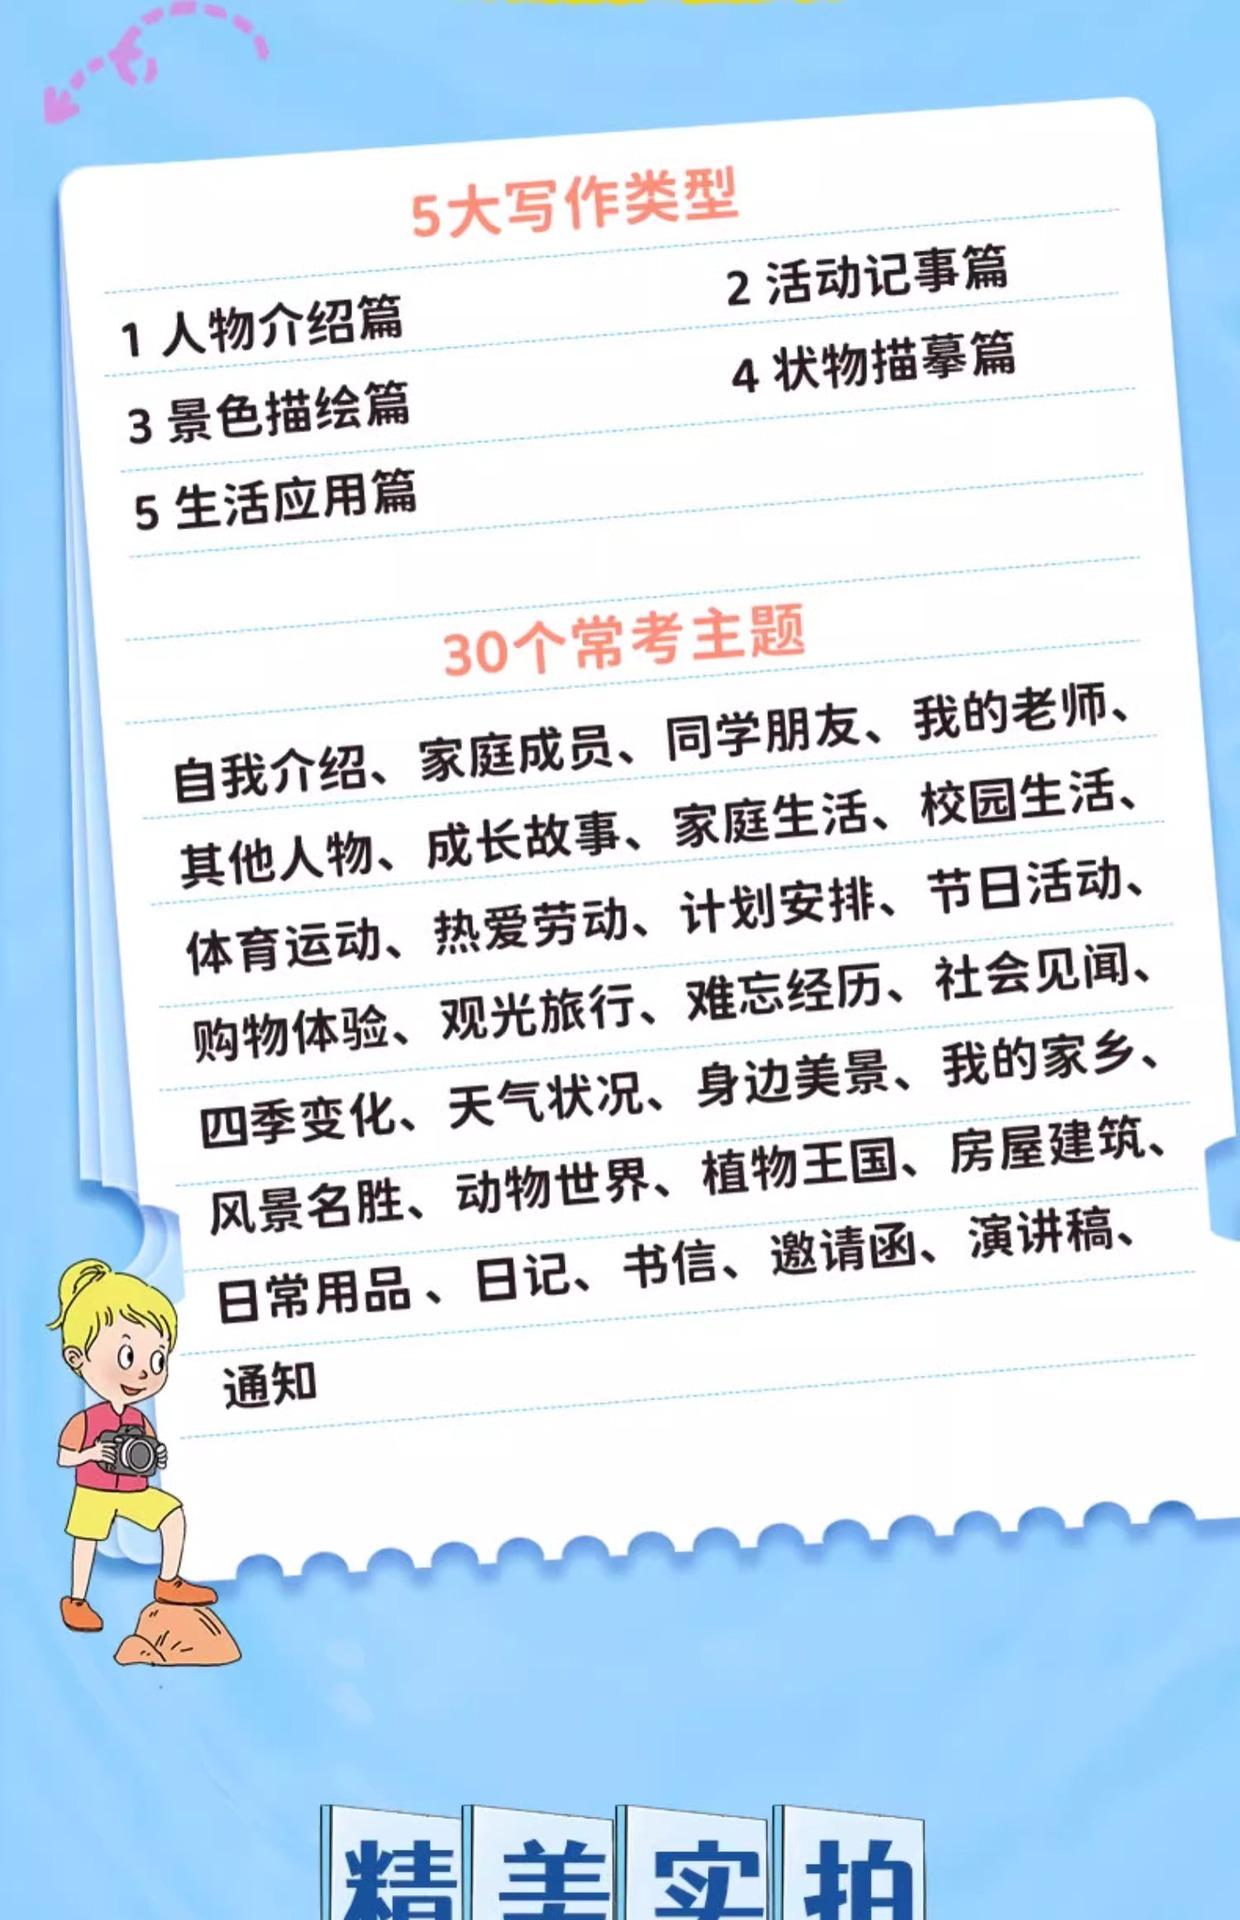 5大写作类型
1 人物介绍篇 2 活动记事篇
3 景色描绘篇 4 状物描摹篇
5 生活应用篇
30个常考主题
自我介绍、家庭成员、同学朋友、我的老师、
其他人物、成长故事、家庭生活、校园生活、
体育运动、热爱劳动、计划安排、节日活动、
购物体验、观光旅行、难忘经历、社会见闻、
四季变化、天气状况、身边美景、我的家乡、
风景名胜、动物世界、植物王国、房屋建筑、
日常用品、日记、书信、邀请函、演讲稿、
通知
精美实拍